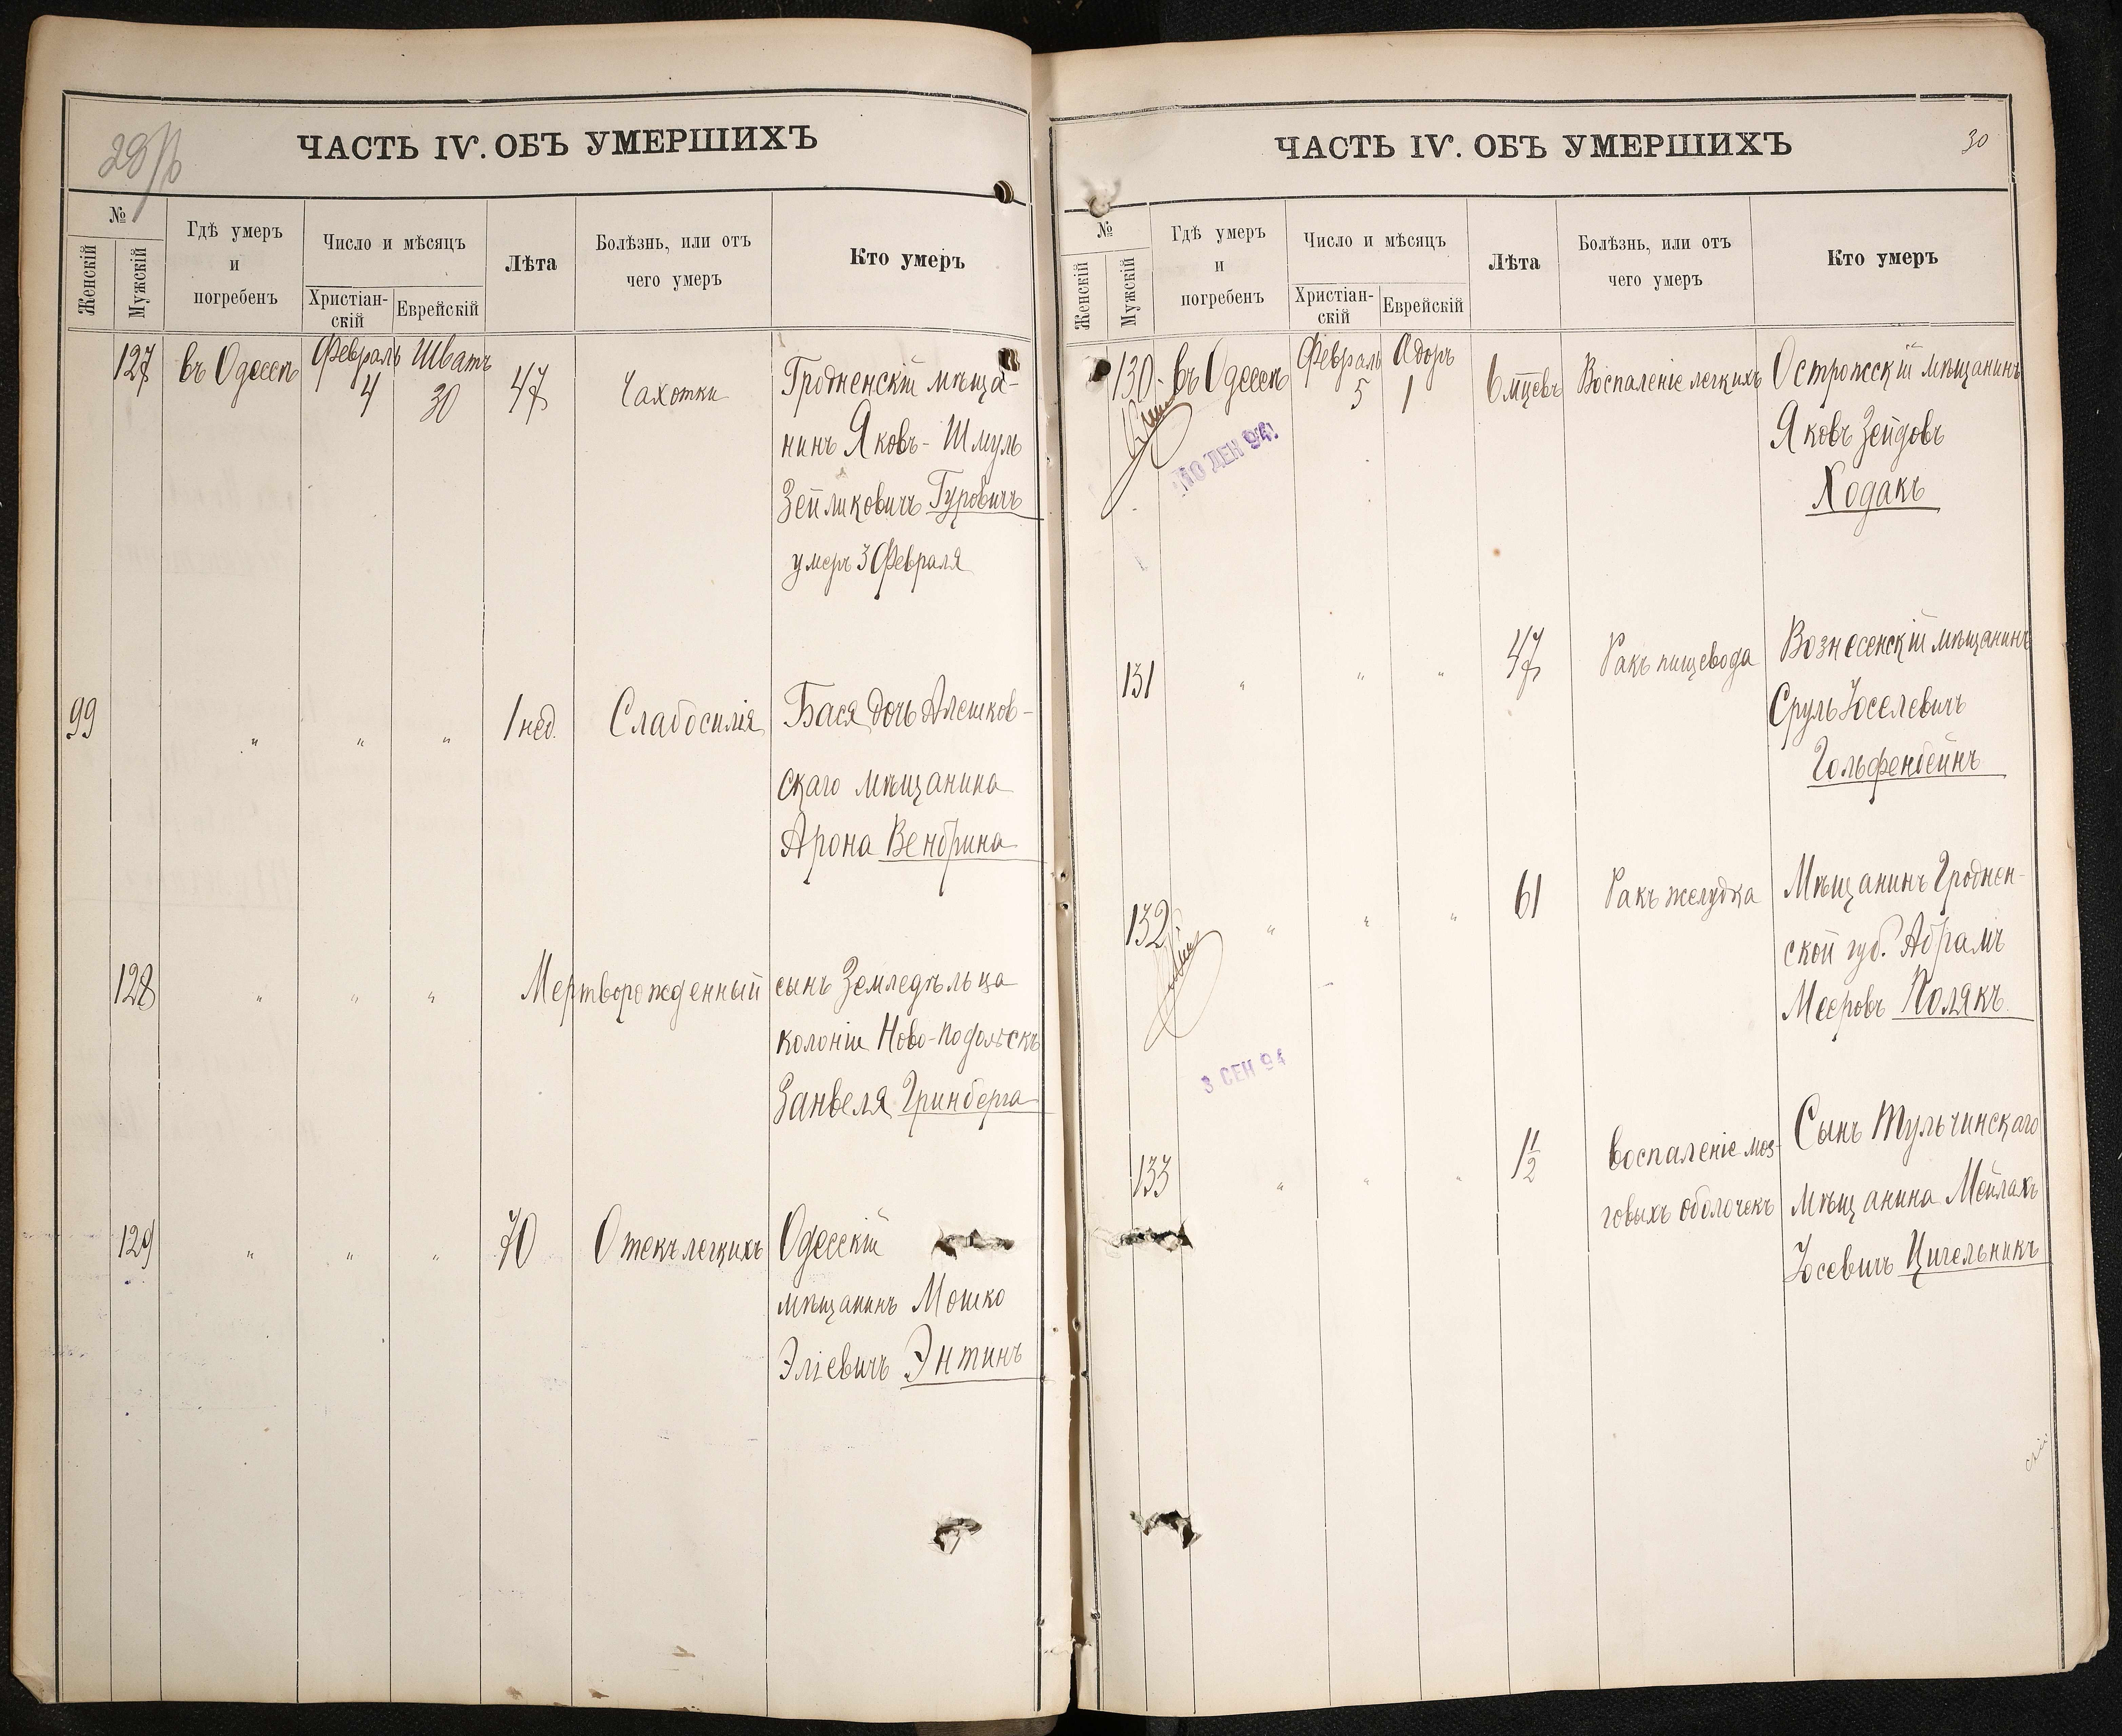 29/об
ЧАСТЬ IV. ОБЪ УМЕРШИХЪ
№
Женскій
Мужскій
Гдѣ умеръ
и
погребенъ
Число и мѣсяцъ
Христіан-
скій
Еврейскій
Лѣта
Болѣзнь, или отъ
чего умеръ
Кто умеръ
127 въ Одессѣ Февраль 4 Шватъ 30 47 Чахотки Гродненскій мѣща-
нинъ Яковъ-Шмуль
Зейликовичъ Гуровичъ
умеръ 3 Февраля
99 " " " 1 нед. Слабосилія Бася дочь Алешков-
скаго мѣщанина
Арона Вендрина
128 " " " Мертворожденный сынъ Земледѣльца
колоніи Ново-Подольскъ
Занвеля Гринберга
129 " " " 70 Отекъ легкихъ Одесскій
мѣщанинъ Мошко
Эліевичъ Энтинъ
ЧАСТЬ IV. ОБЪ УМЕРШИХЪ
30
№
Женскій
Мужскій
Гдѣ умеръ
и
погребенъ
Число и мѣсяцъ
Христіан-
скій
Еврейскій
Лѣта
Болѣзнь, или отъ
чего умеръ
Кто умеръ
130 въ Одессѣ Февраль 5 Адоръ 1 6 мцевъ Воспаленіе легкихъ Острожскій мѣщанинъ
Яковъ Зейдовъ
Ходакъ
ДЕК 94
131 " " " 47 Ракъ пищевода Вознесенскій мѣщанинъ
Сруль Іоселевичъ
Гольфенбейнъ
132 " " " 61 Ракъ желудка Мѣщанинъ Гроднен-
ской губ. Абрамъ
Меєровъ Полякъ
3 СЕН 94
133 " " " 1 1/2 воспаленіе моз-
говыхъ оболочекъ
Сынъ Тульчинскаго
мѣщанина Мейлахъ
Іосевичъ Цигельникъ